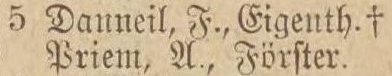 5 Danneil, F., Eigenth. †
Priem, A., Förster.